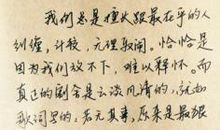 我们总是擅长跟最在乎的人
纠缠，计较，无理取闹。恰恰是
因为我们放不下，难以释怀。而
真正的割舍是云淡风清的，就如
歌词里的：若无其事，原来是最狠